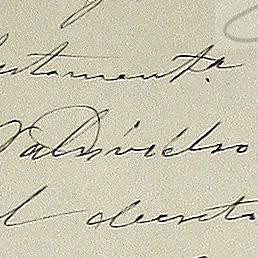 estament.ª
Valdivielso
l decreto